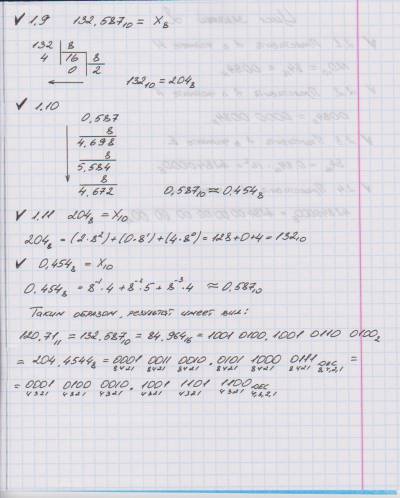 ✓ 1.9 132,587₁₀ = X₈
132 | 8
4 16 | 8
0 2
132₁₀ = 204₈
✓ 1.10
0,587
8
4,698
8
5,584
8
4,672 0,587₁₀ ≈ 0,454₈
✓ 1.11 204₈ = X₁₀
204₈ = (2·8²)+(0·8¹)+(4·8⁰) = 128+0+4 = 132₁₀
✓ 0,454₈ = X₁₀
0,454₈ = 8⁻¹·4 + 8⁻²·5 + 8⁻³·4 ≈ 0,587₁₀
Таким образом, результат имеет вид:
120,71₁₁ = 132,587₁₀ = 84,964₁₆ = 1001 0100, 1001 0110 0100₂
= 204,4544₈ = 0001 0011 0010, 0101 1000 0111 DEC 8,4,2,1 =
8421 8421 8421 8421 8421 8421
= 0001 0100 0010, 1001 1101 1100 DEC 4,3,2,1
4321 4321 4321 4321 4321 4321